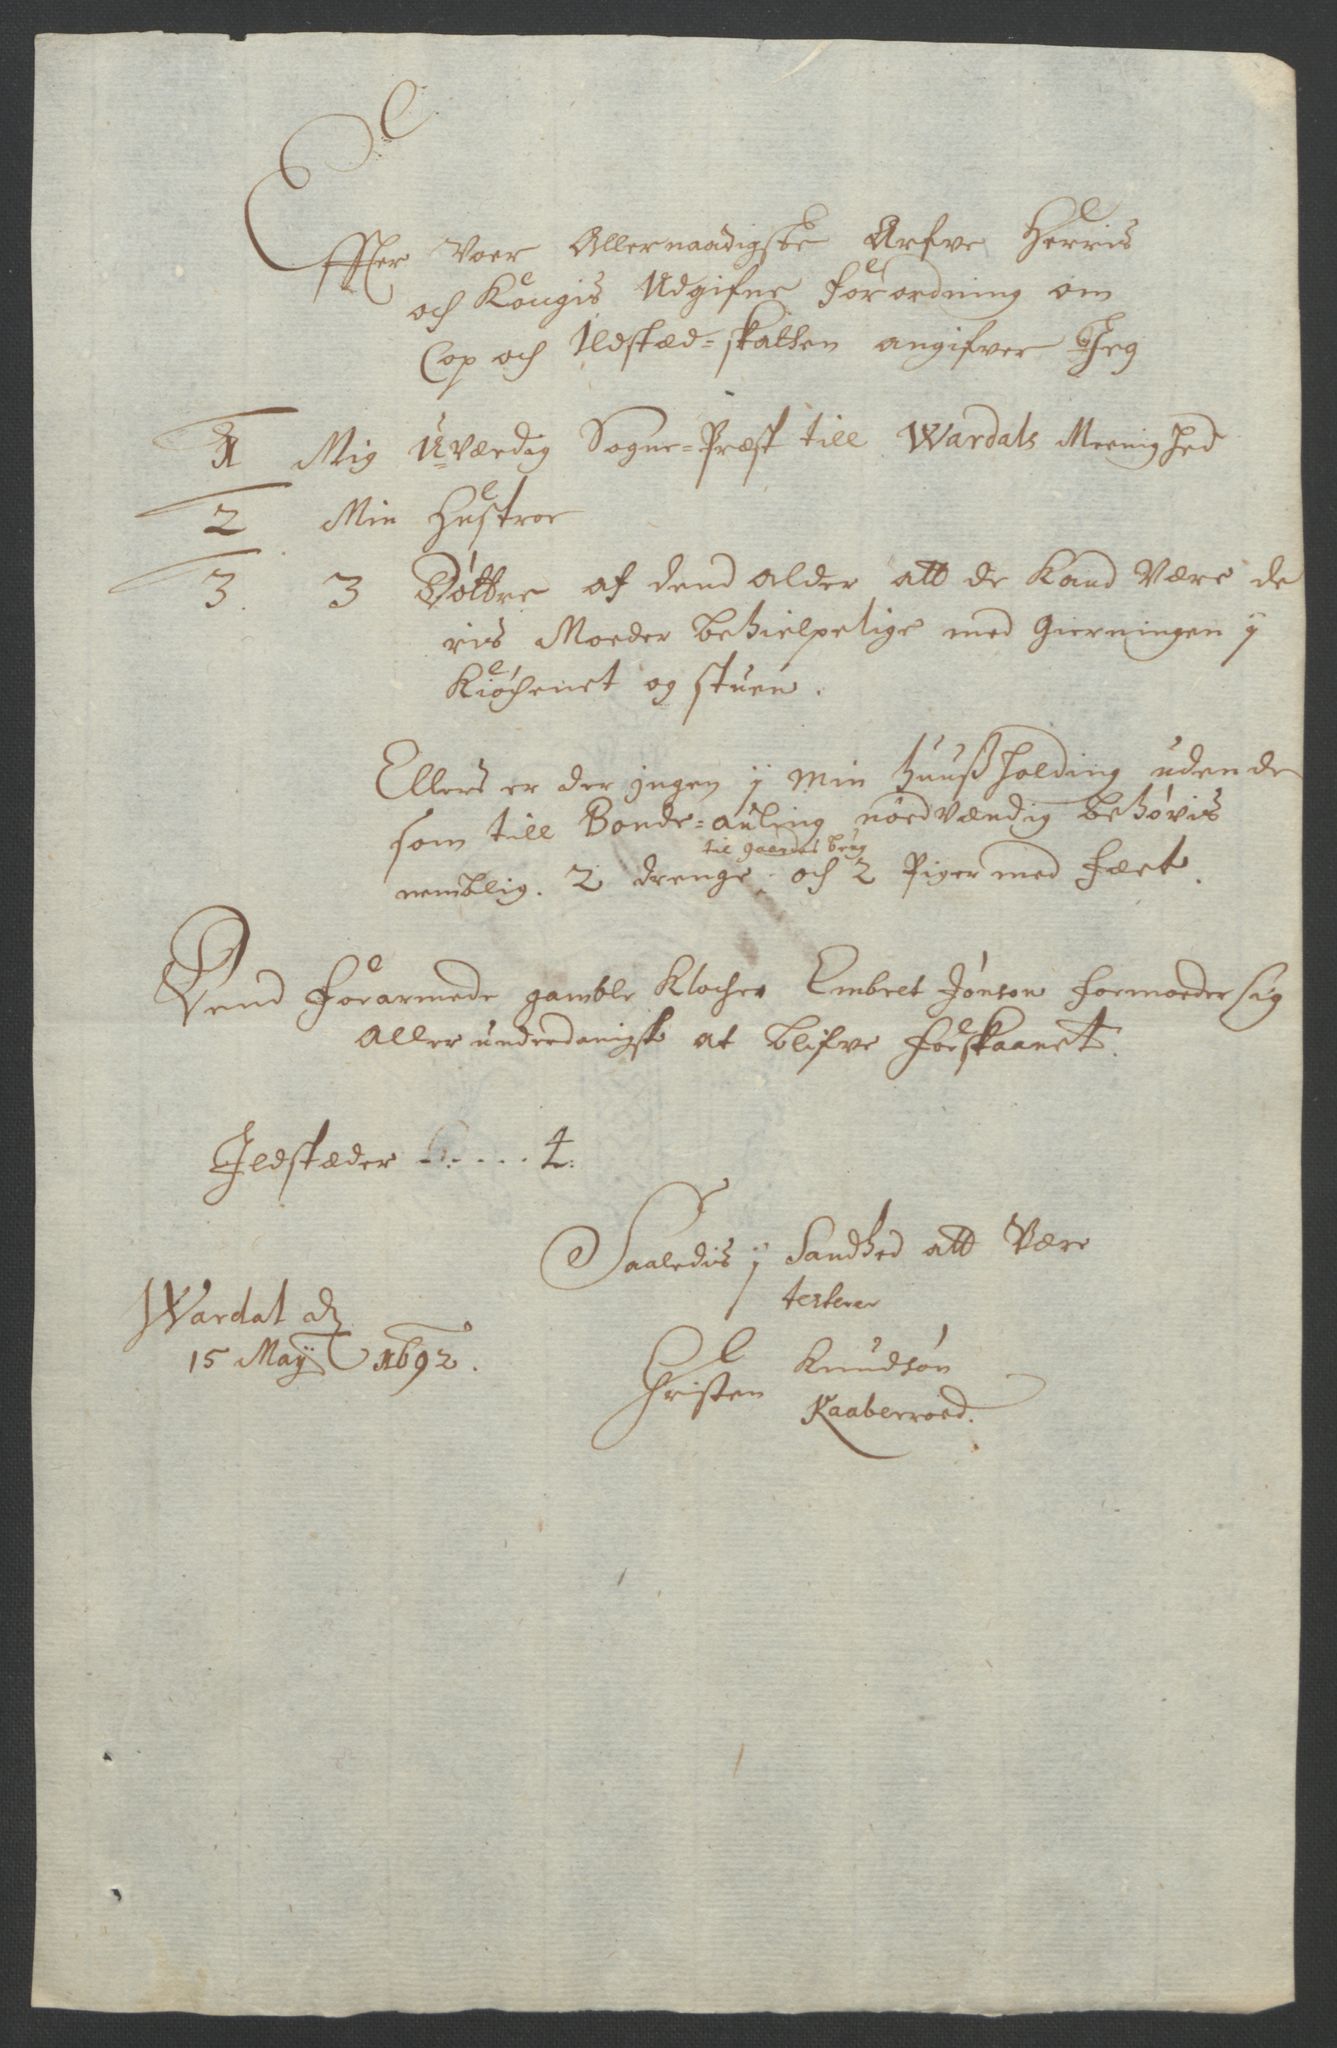 Effter voer Allernaadigste Arfve Herris
och Kongis Udgifne forordning om
Cop och Ildsted-skatten angifver Jeg
1 Mig Uværdig Sogne-Præst till Wardals Meenighed
2 Min Hustroe
3. 3 Døttre af dend alder att de kand være de
ris Moeder behielpelige med gierningen ÿ
Kiøchenet og stuen.
Ellers er der jngen ÿ min huußholding uden de
som till Bonde-auling nødvændig behøvis
til gaardens brug
nemblig. 2 drenge och 2 Piger med fæet.
Dend forarmede gamble Klocher Embret Jonson formoeder sig
Allerunderdanigst at blifve forskaanet.
Jldstæder - - . . . . 4:
Saaledis ÿ Sandhed att være
testerer
Wardal d
15 Maÿ 1692.
Christen Knudsøn
Kaaberroed.